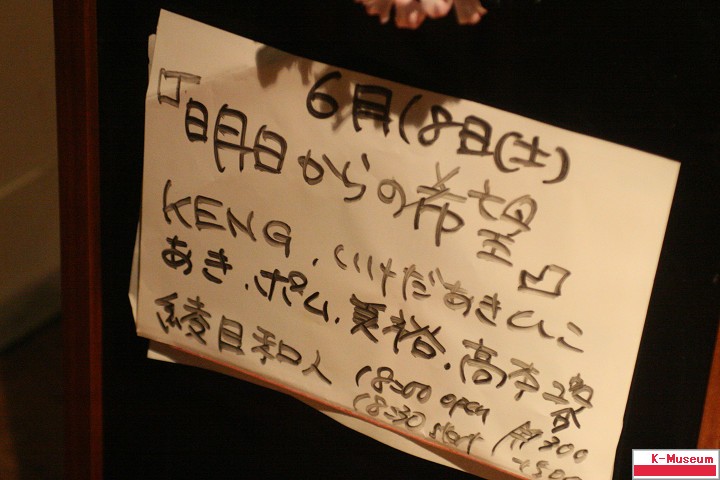 6月18日(土)
『明日からの希望』
KENG.いけだあきひこ
あき.ポム.夏裕.高
綾目和人 18:00 open
18:30 start
K-Museum